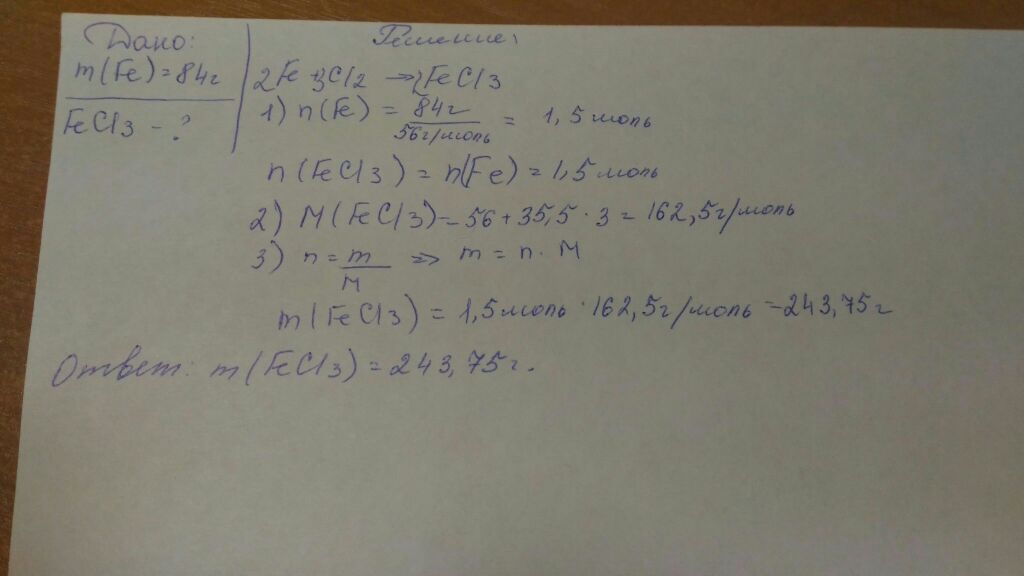 Дано:
m(Fe)=84г
FeCl3 - ?
Решение:
2Fe+3Cl2 → 2FeCl3
1) n(Fe) = 84г / 56г/моль = 1,5 моль
n(FeCl3) = n(Fe) = 1,5 моль
2) M(FeCl3) = 56 + 35,5 · 3 = 162,5г/моль
3) n = m / M => m = n · M
m(FeCl3) = 1,5 моль · 162,5г/моль = 243,75г
Ответ: m(FeCl3) = 243,75г.